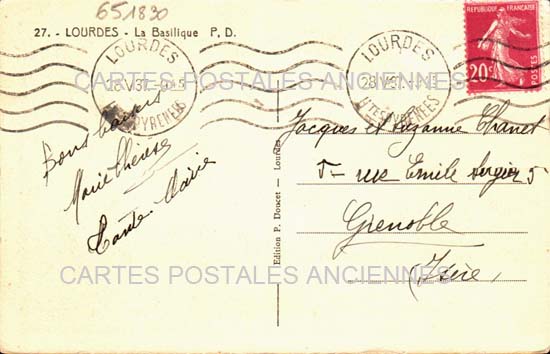 651830
27. - LOURDES - La Basilique P. D.
LOURDES
LOURDES
REPUBLIQUE FRANÇAISE
POSTES
20c
CARTES POSTALES ANCIENNES
HTES PYRENEES
Bons baisers
Marie Thérèse
Tante Marie
Edition P. Doucet - Lourdes
Jacques et Suzanne Chanet
5 - rue Emile 5
Grenoble
(Isère)
CARTES POSTALES ANCIENNES